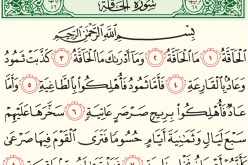 سُورَةُ الْحَاقَّةِ
بِسْمِ اللَّهِ الرَّحْمَٰنِ الرَّحِيمِ
الْحَاقَّةُ ١ مَا الْحَاقَّةُ ٢ وَمَا أَدْرَاكَ مَا الْحَاقَّةُ ٣ كَذَّبَتْ ثَمُودُ
وَعَادٌ بِالْقَارِعَةِ ٤ فَأَمَّا ثَمُودُ فَأُهْلِكُوا بِالطَّاغِيَةِ ٥ وَأَمَّا
عَادٌ فَأُهْلِكُوا بِرِيحٍ صَرْصَرٍ عَاتِيَةٍ ٦ سَخَّرَهَا عَلَيْهِمْ
سَبْعَ لَيَالٍ وَثَمَانِيَةَ أَيَّامٍ حُسُومًا فَتَرَى الْقَوْمَ فِيهَا صَرْعَىٰ